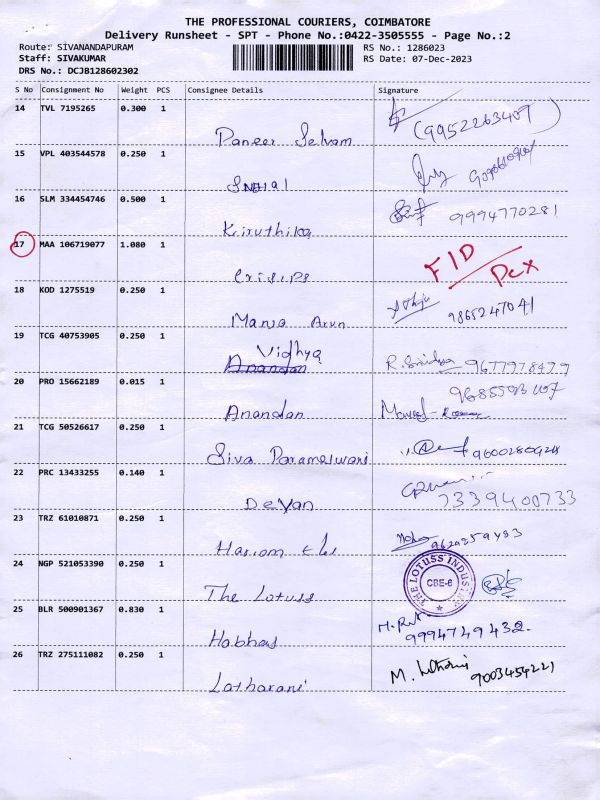 THE PROFESSIONAL COURIERS, COIMBATORE
Delivery Runsheet - SPT - Phone No.:0422-3505555 - Page No.:2
Route: SIVANANDAPURAM
Staff: SIVAKUMAR
DRS No.: DCJB128602302
RS No.: 1286023
RS Date: 07-Dec-2023
S No Consignment No Weight PCS Consignee Details Signature
14 TVL 7195265 0.300 1
Paneer Selvam (9952263407)
15 VPL 403544578 0.250 1
Snehal
16 SLM 334454746 0.500 1
Kiruthika 9994770281
17 MAA 106719077 1.080 1
Crisips F/D
18 KOD 1275519 0.250 1
Manja Arun 9865247041
19 TCG 40753905 0.250 1
Vidhya
Anandan 9677978479
20 PRO 15662189 0.015 1
Anandan
21 TCG 50526617 0.250 1
Siva Parameswari
22 PRC 13433255 0.140 1
Devan 7339400733
23 TRZ 61010871 0.250 1
Hariom 9629259483
24 NGP 521053390 0.250 1
The Lotuss THE LOTUSS CBE-6
25 BLR 500901367 0.830 1
Habhas 9994749432
26 TRZ 275111082 0.250 1
Latharani 9003454221